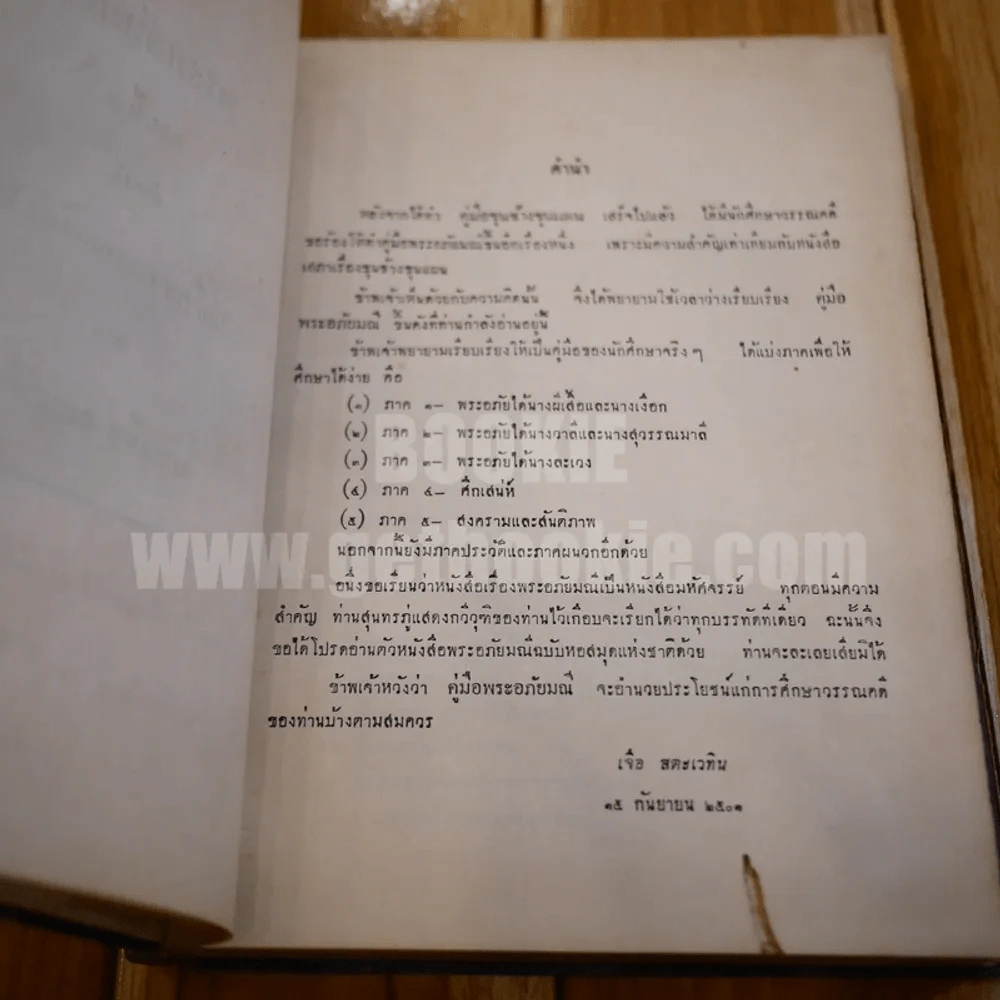 คำนำ
หลังจากได้ทำ คู่มือขุนช้างขุนแผน เสร็จไปแล้ว ได้มีนักศึกษาวรรณคดี
ขอร้องให้ทำคู่มือพระอภัยมณีขึ้นอีกเรื่องหนึ่ง เพราะมีความสำคัญเท่าเทียมกับหนังสือ
เสภาเรื่องขุนช้างขุนแผน
ข้าพเจ้าเห็นด้วยกับความคิดนั้น จึงได้พยายามใช้เวลาว่างเรียบเรียง คู่มือ
พระอภัยมณี ขึ้นดังที่ท่านกำลังอ่านอยู่นี้
ข้าพเจ้าพยายามเรียบเรียงให้เป็นคู่มือของนักศึกษาจริง ๆ ได้แบ่งภาคเพื่อให้
ศึกษาได้ง่าย คือ
(๑) ภาค ๑— พระอภัยได้นางผีเสื้อและนางเงือก
(๒) ภาค ๒— พระอภัยได้นางวาลีและนางสุวรรณมาลี
(๓) ภาค ๓— พระอภัยได้นางละเวง
(๔) ภาค ๔— ศึกเสน่ห์
(๕) ภาค ๕— สงครามและสันติภาพ
นอกจากนี้ยังมีภาคประวัติและภาคผนวกอีกด้วย
อนึ่งขอเรียนว่าหนังสือเรื่องพระอภัยมณีเป็นหนังสือมหัศจรรย์ ทุกตอนมีความ
สำคัญ ท่านสุนทรภู่แสดงกวีวุฒิของท่านไว้เกือบจะเรียกได้ว่าทุกบรรทัดทีเดียว ฉะนั้นจึง
ขอได้โปรดอ่านตัวหนังสือพระอภัยมณีฉบับหอสมุดแห่งชาติด้วย ท่านจะละเลยเสียมิได้
ข้าพเจ้าหวังว่า คู่มือพระอภัยมณี จะอำนวยประโยชน์แก่การศึกษาวรรณคดี
ของท่านบ้างตามสมควร
เจือ สตะเวทิน
๑๕ กันยายน ๒๕๐๑
BOOKIE
www.getbookie.com